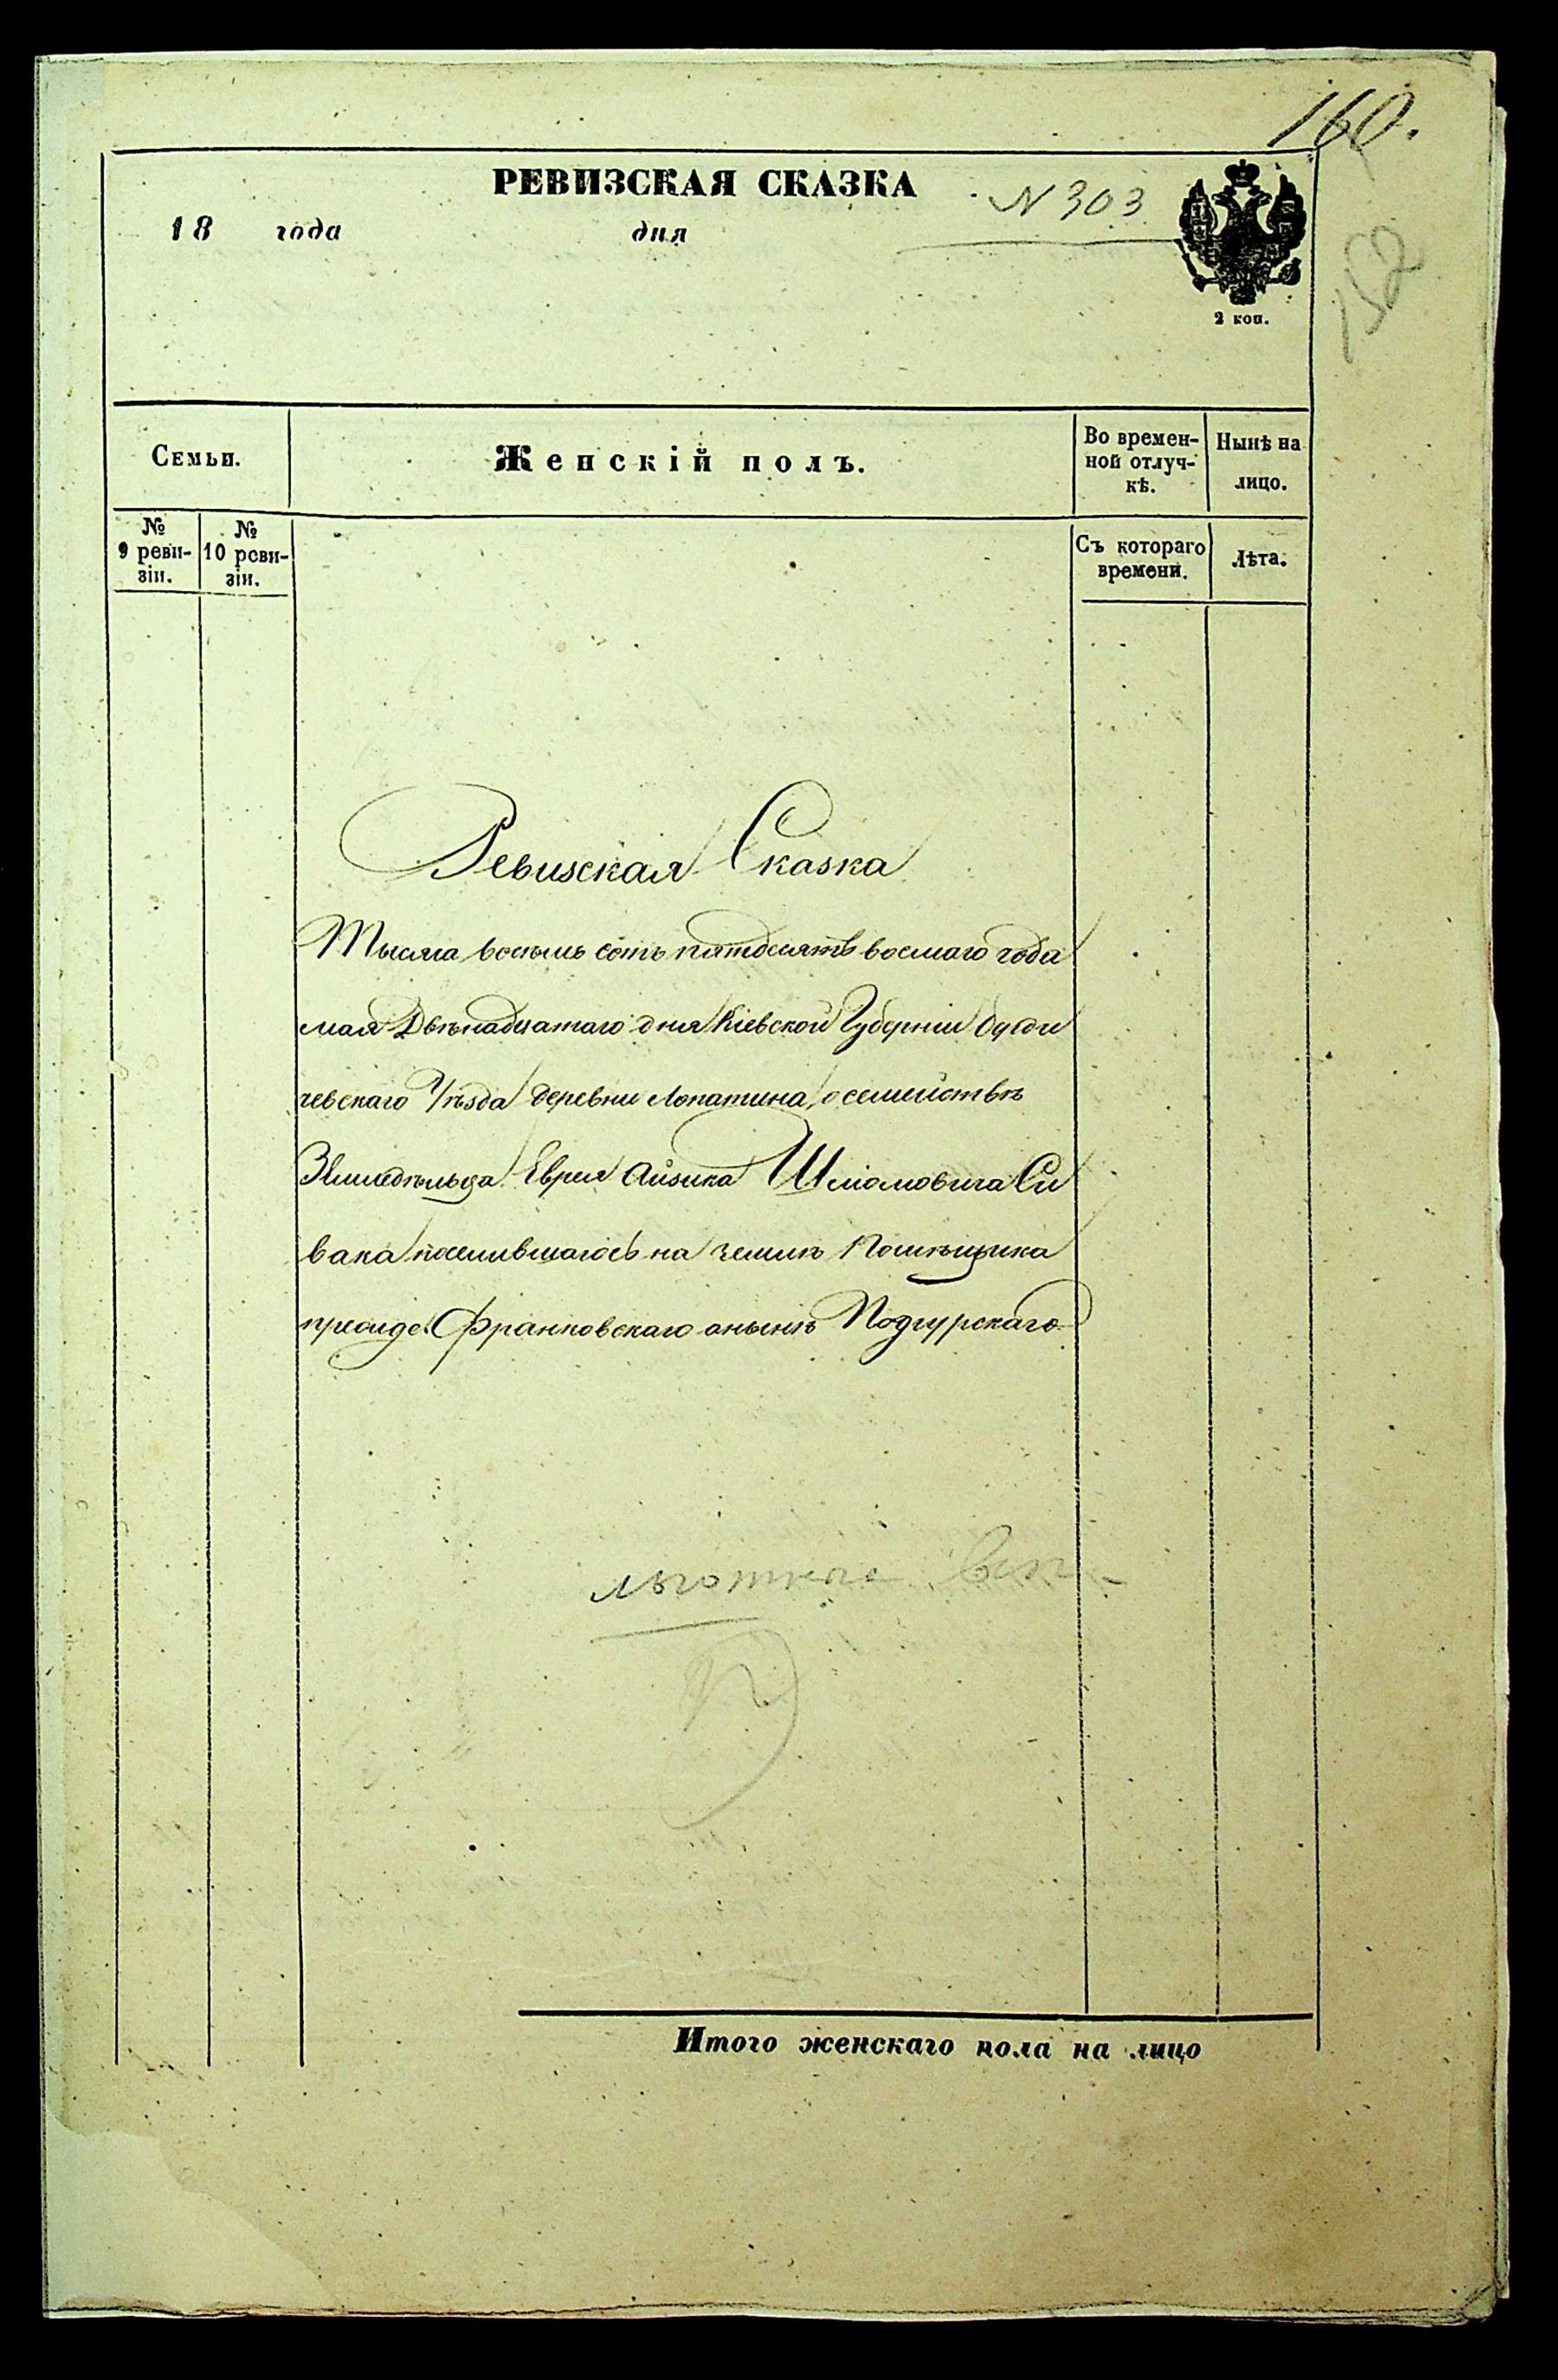 160.
РЕВИЗСКАЯ СКАЗКА
N 303
18 года дня
152
2 коп.
Семьи.
Женскій полъ.
Во времен-
ной отлуч-
кѣ.
Нынѣ на
лицо.
№
9 реви-
зіи.
№
10 реви-
зіи.
Съ котораго
времени.
Лѣта.
Ревизская Сказка
Тысяча восемь сотъ пятдесятъ восмаго года
мая Двѣнадцатаго дня Кіевской Губерніи Берди
чевскаго Уѣзда деревни Лопатина о семействѣ
Земледѣльца Еврея Айзика Шліомовича Си
вака поселившагось на землѣ Помѣщика
прежде Франковскаго анынѣ Подгурскаго
льготные
Итого женскаго пола на лицо